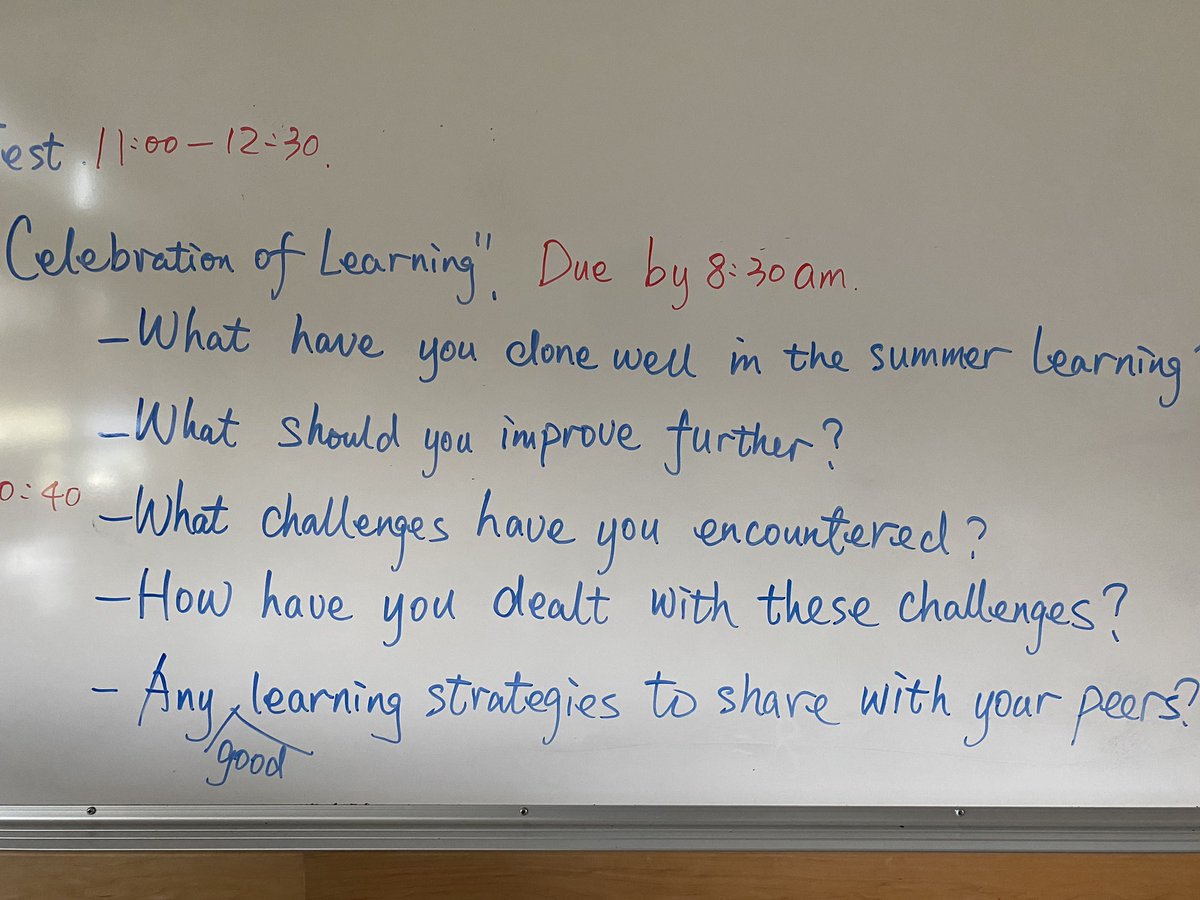 est. 11:00 – 12:30.
Celebration of Learning". Due by 8:30 am.
– What have you done well in the summer learning?
– What should you improve further?
0:40
– What challenges have you encountered?
– How have you dealt with these challenges?
– Any good learning strategies to share with your peers?